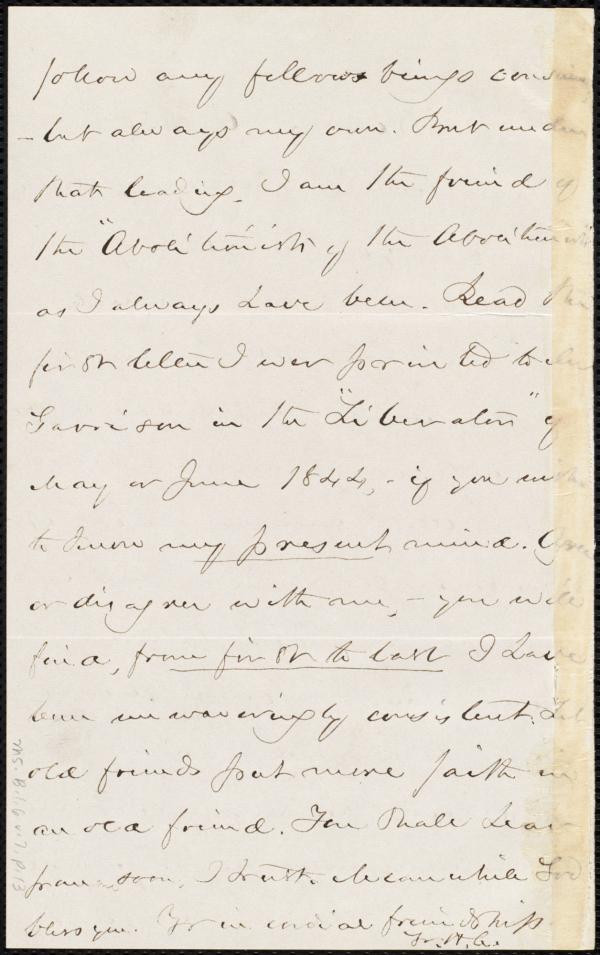 follow any fellow beings conscience,
- but always my own. But under
that leading, I am the friend of
the "Abolitionists of the Abolitionists"
as I always have been. Read the
first letter I ever printed to
Garrison in the "Liberator" of
May or June 1844, - if you wish
to know my present mind. Agree
or disagree with me, - you will
find, from first to last I have
been unwaveringly consistent. Let
old friends put more faith in
an old friend. You shall hear
from soon, I trust. Meanwhile God
bless you. Yr in cordial friendship
MS.B.1.6 v.7, p.13